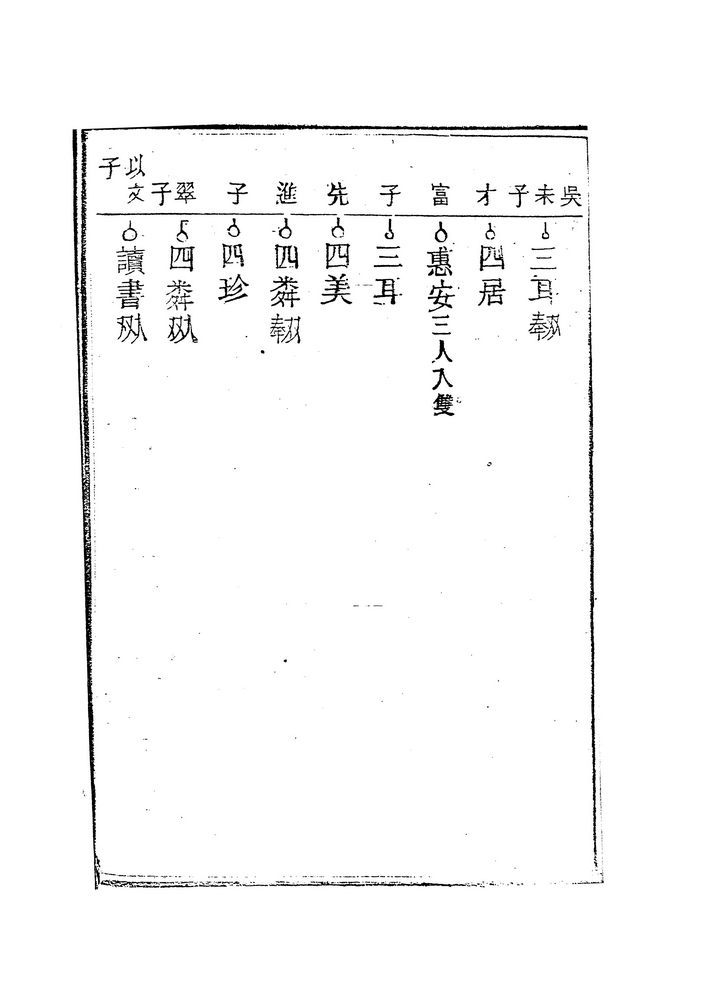 吳
未子
三耳
才
四居
富
惠安三人入雙
子
三耳
先
四美
進
四粦
子
四珍
翠子
四粦
以文子
讀書